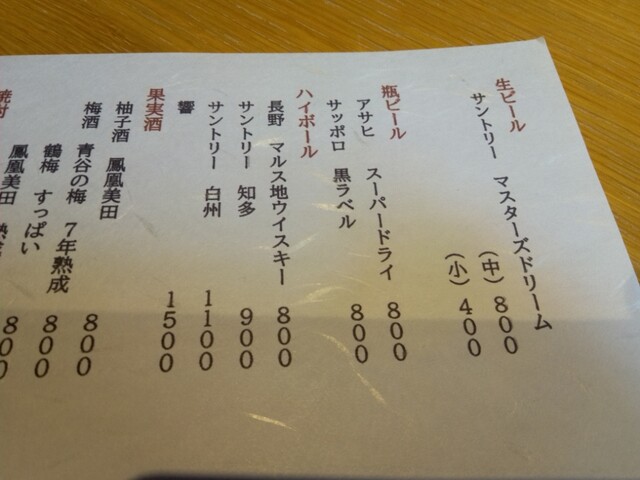 生ビール
サントリー マスターズドリーム
(中) 800
(小) 400
瓶ビール
アサヒ スーパードライ 800
サッポロ 黒ラベル 800
ハイボール
長野 マルス地ウイスキー 800
サントリー 知多 900
サントリー 白州 1100
響 1500
果実酒
柚子酒 鳳凰美田 800
梅酒 青谷の梅 7年熟成 800
鶴梅 すっぱい 800
鳳凰美田